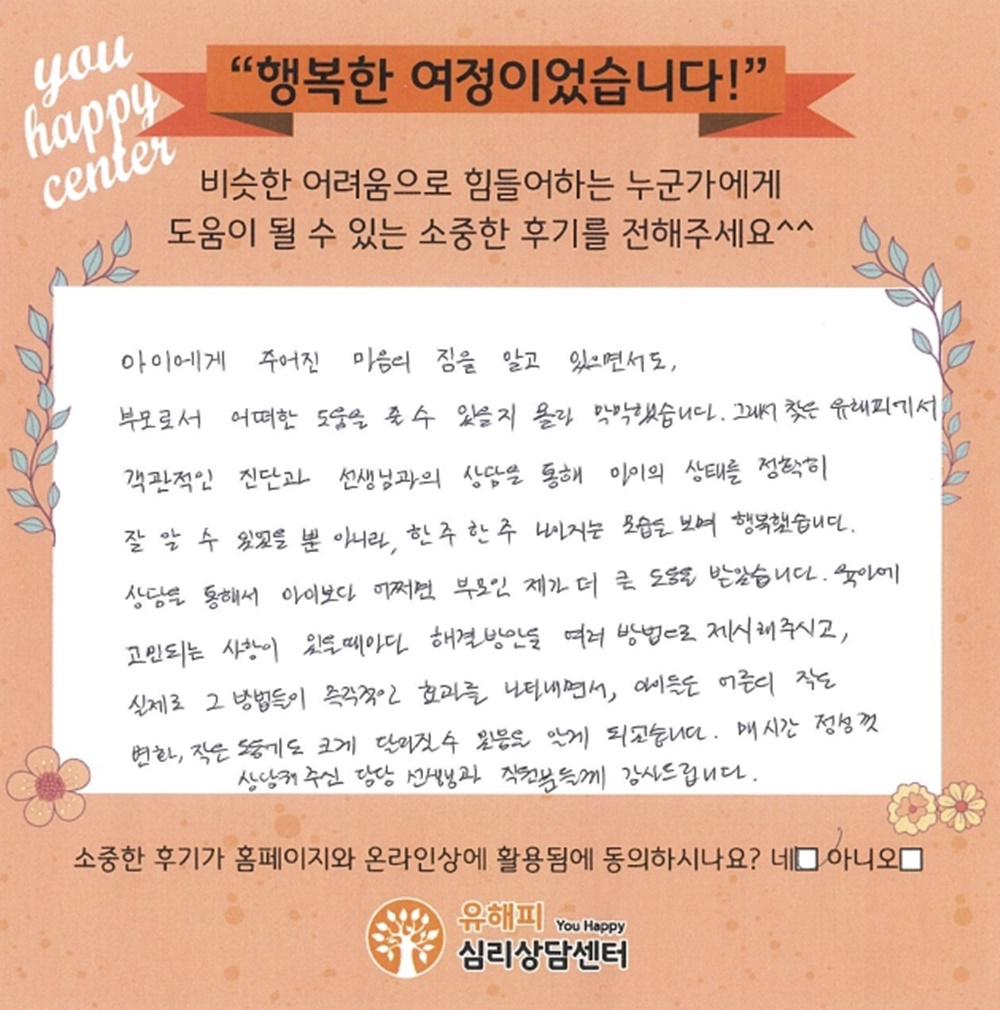 you
happy
center
“행복한 여정이었습니다!”
비슷한 어려움으로 힘들어하는 누군가에게
도움이 될 수 있는 소중한 후기를 전해주세요^^
아이에게 주어진 마음의 짐을 알고 있으면서도,
부모로서 어떠한 도움을 줄 수 있을지 몰라 막막했습니다. 그래서 찾은 유해피에서
객관적인 진단과 선생님과의 상담을 통해 아이의 상태를 정확히
잘 알 수 있었을 뿐 아니라, 한 주 한 주 나아지는 모습을 보며 행복했습니다.
상담을 통해서 아이보다 어쩌면 부모인 제가 더 큰 도움을 받았습니다. 육아에
고민되는 사항이 있을때마다 해결방안을 여러 방법으로 제시해주시고,
실제로 그 방법들이 즉각적인 효과를 나타내면서, 아이들은 어른의 작은
변화, 작은 도움에도 크게 달라질 수 있음을 알게 되었습니다. 매 시간 정성껏
상담해 주신 담당 선생님과 직원분들께 감사드립니다.
소중한 후기가 홈페이지와 온라인상에 활용됨에 동의하시나요? 네□ 아니오□
유해피 You Happy
심리상담센터